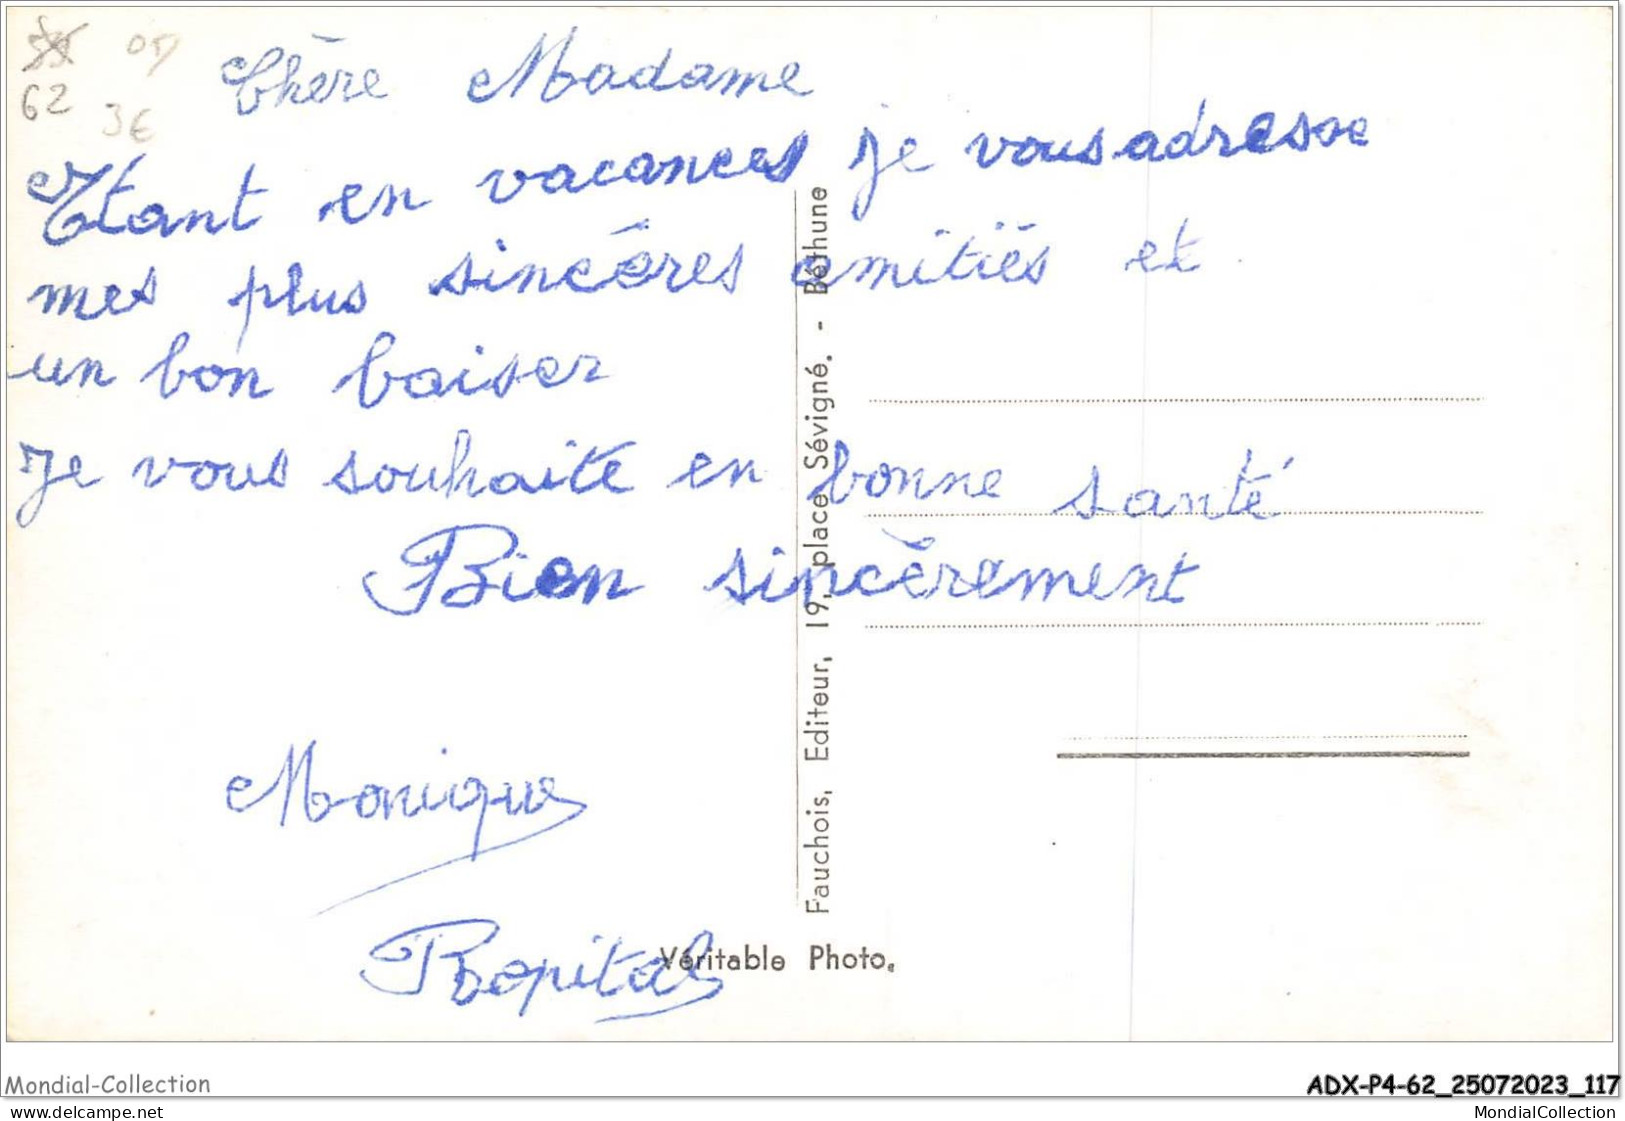 05
62
3€
Chère Madame
Etant en vacances je vous adresse
mes plus sincères amitiés et
un bon baiser
Je vous souhaite en bonne santé
Bien sincèrement
Monique
Ropital
Fauchois, Editeur, 19, place Sévigné. - Béthune
Véritable Photo.
Mondial-Collection
ADX-P4-62_25072023_117
MondialCollection